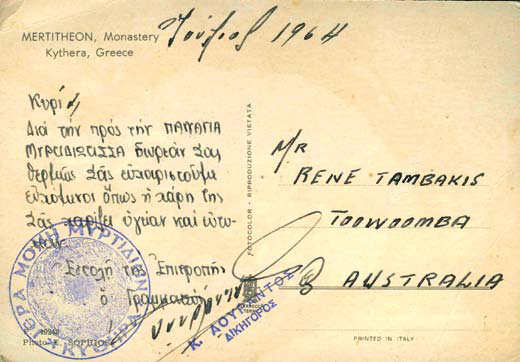 MERTITHEON, Monastery
Kythera, Greece
1964
Κυρι
Διά τήν πρός τήν ΠΑΝΑΓΙΑ
ΜΥΡΤΙΔΙΩΤΙΣΣΑ δωρεάν Σας
θερμῶς Σᾶς εὐχαριστοῦμε
εὐχόμενοι ὅπως ἡ χάρη της
Σᾶς χαρίζει ὑγείαν καί εὐτυ-
Ἐντολῇ τῆς Ἐπιτροπῆς
ὁ Γραμματεύς
ΙΕΡΑ ΜΟΝΗ ΜΥΡΤΙΔΙΩΝ
ΚΥΘΗΡΑ
Κ. ΛΟΥΡΑΝΤΟΣ
ΔΙΚΗΓΟΡΟΣ
Photo E. SOPHIOS
FOTOCOLOR - RIPRODUZIONE VIETATA
Mr
RENE TAMBAKIS
TOOWOOMBA
Q AUSTRALIA
PRINTED IN ITALY